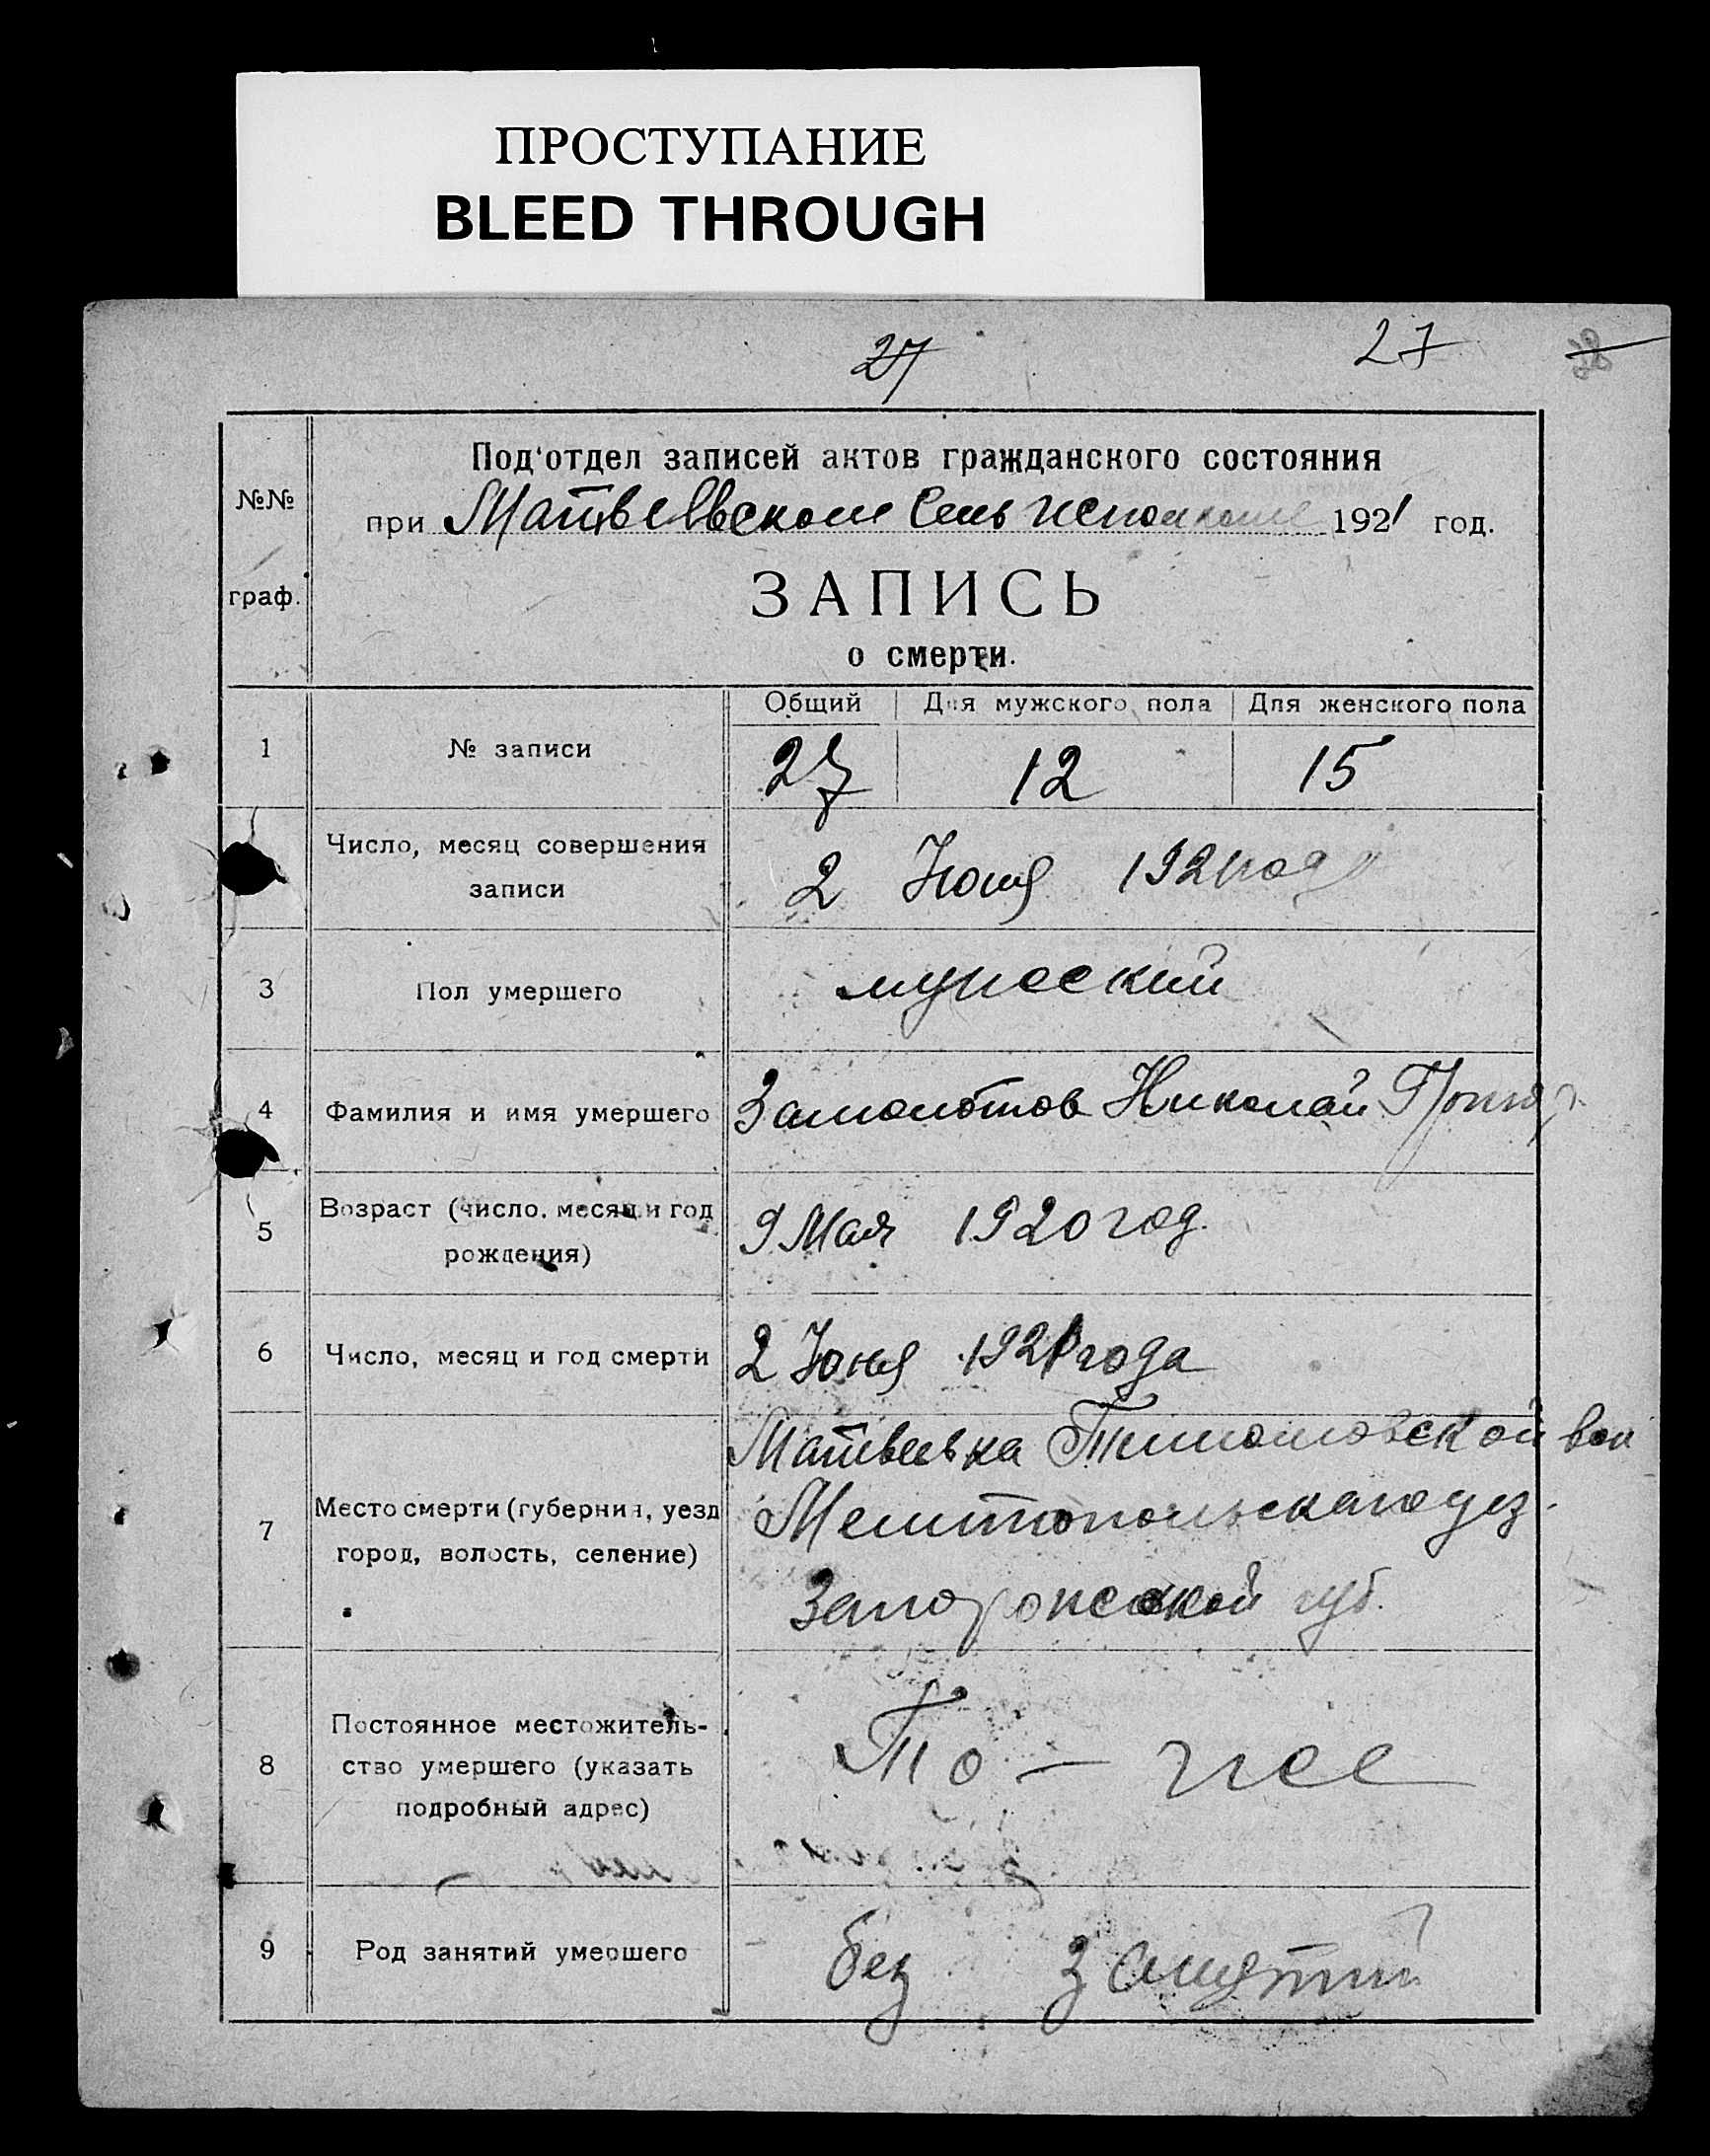 ПРОСТУПАНИЕ
BLEED THROUGH
27
27
Под'отдел записей актов гражданского состояния
№№
при Матвеевском Сельисполкоме 1921 год.
граф.
ЗАПИСЬ
о смерти.
Общий Для мужского пола Для женского пола
1 № записи 27 12 15
Число, месяц совершения
записи
2 Июня 1921 года
3 Пол умершего мужеский
4 Фамилия и имя умершего Николай
5 Возраст (число, месяц и год
рождения)
9 Мая 1920 год.
6 Число, месяц и год смерти 2 Июня 1921 года
7 Место смерти (губерния, уезд
город, волость, селение)
Матвеевка Тимошовской вол
Мелитопольскаго уез.
Запорожской губ.
8 Постоянное местожитель-
ство умершего (указать
подробный адрес)
То — же
9 Род занятий умершего без занятий